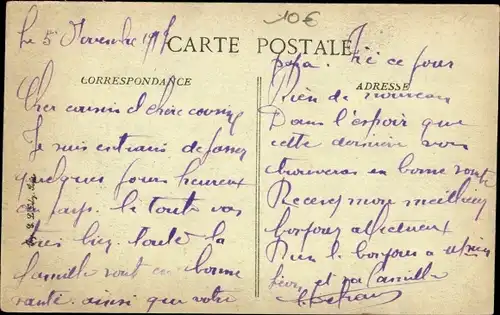 10€
Le 5 Novembre 19
CARTE POSTALE
CORRESPONDANCE
Cher cousin et chère cousine
Je suis entrain de passer
quelques jours heureux
au pays. Je toute va
très bien. toute la
famille sont en bonne
santé. ainsi que votre
papa. Ici ce jour
ADRESSE
Rien de nouveau
Dans l'espoir que
cette dernière vous
trouveras en bonne santé
Recevez mon meilleur
bonjour affectueux
Bien le bonjour a
Léon et sa famille